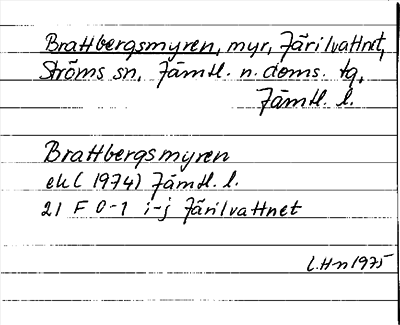 Brattbergsmyren, myr, Järilvattnet,
Ströms sn, Jämtl. n. doms. tg,
Jämtl. l.
Brattbergsmyren
ek (1974) Jämtl. l.
21 F 0-1 i-j Järilvattnet
L.H-n 1975